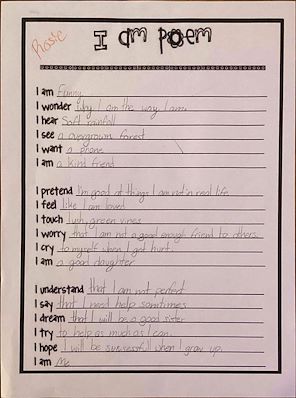 Rosie
I am poem
I am Funny
I wonder why I am the way I am
I hear Soft rainfall
I see a overgrown forest
I want a phone
I am a kind friend
I pretend I'm good at things I am not in real life
I feel like I am loved
I touch lush green vines
I worry that I am not a good enough friend to others.
I cry to myself when I get hurt.
I am a good daughter
I understand that I am not perfect
I say that I need help sometimes
I dream that I will be a good sister
I try to help as much as I can.
I hope I will be successful when I grow up.
I am Me